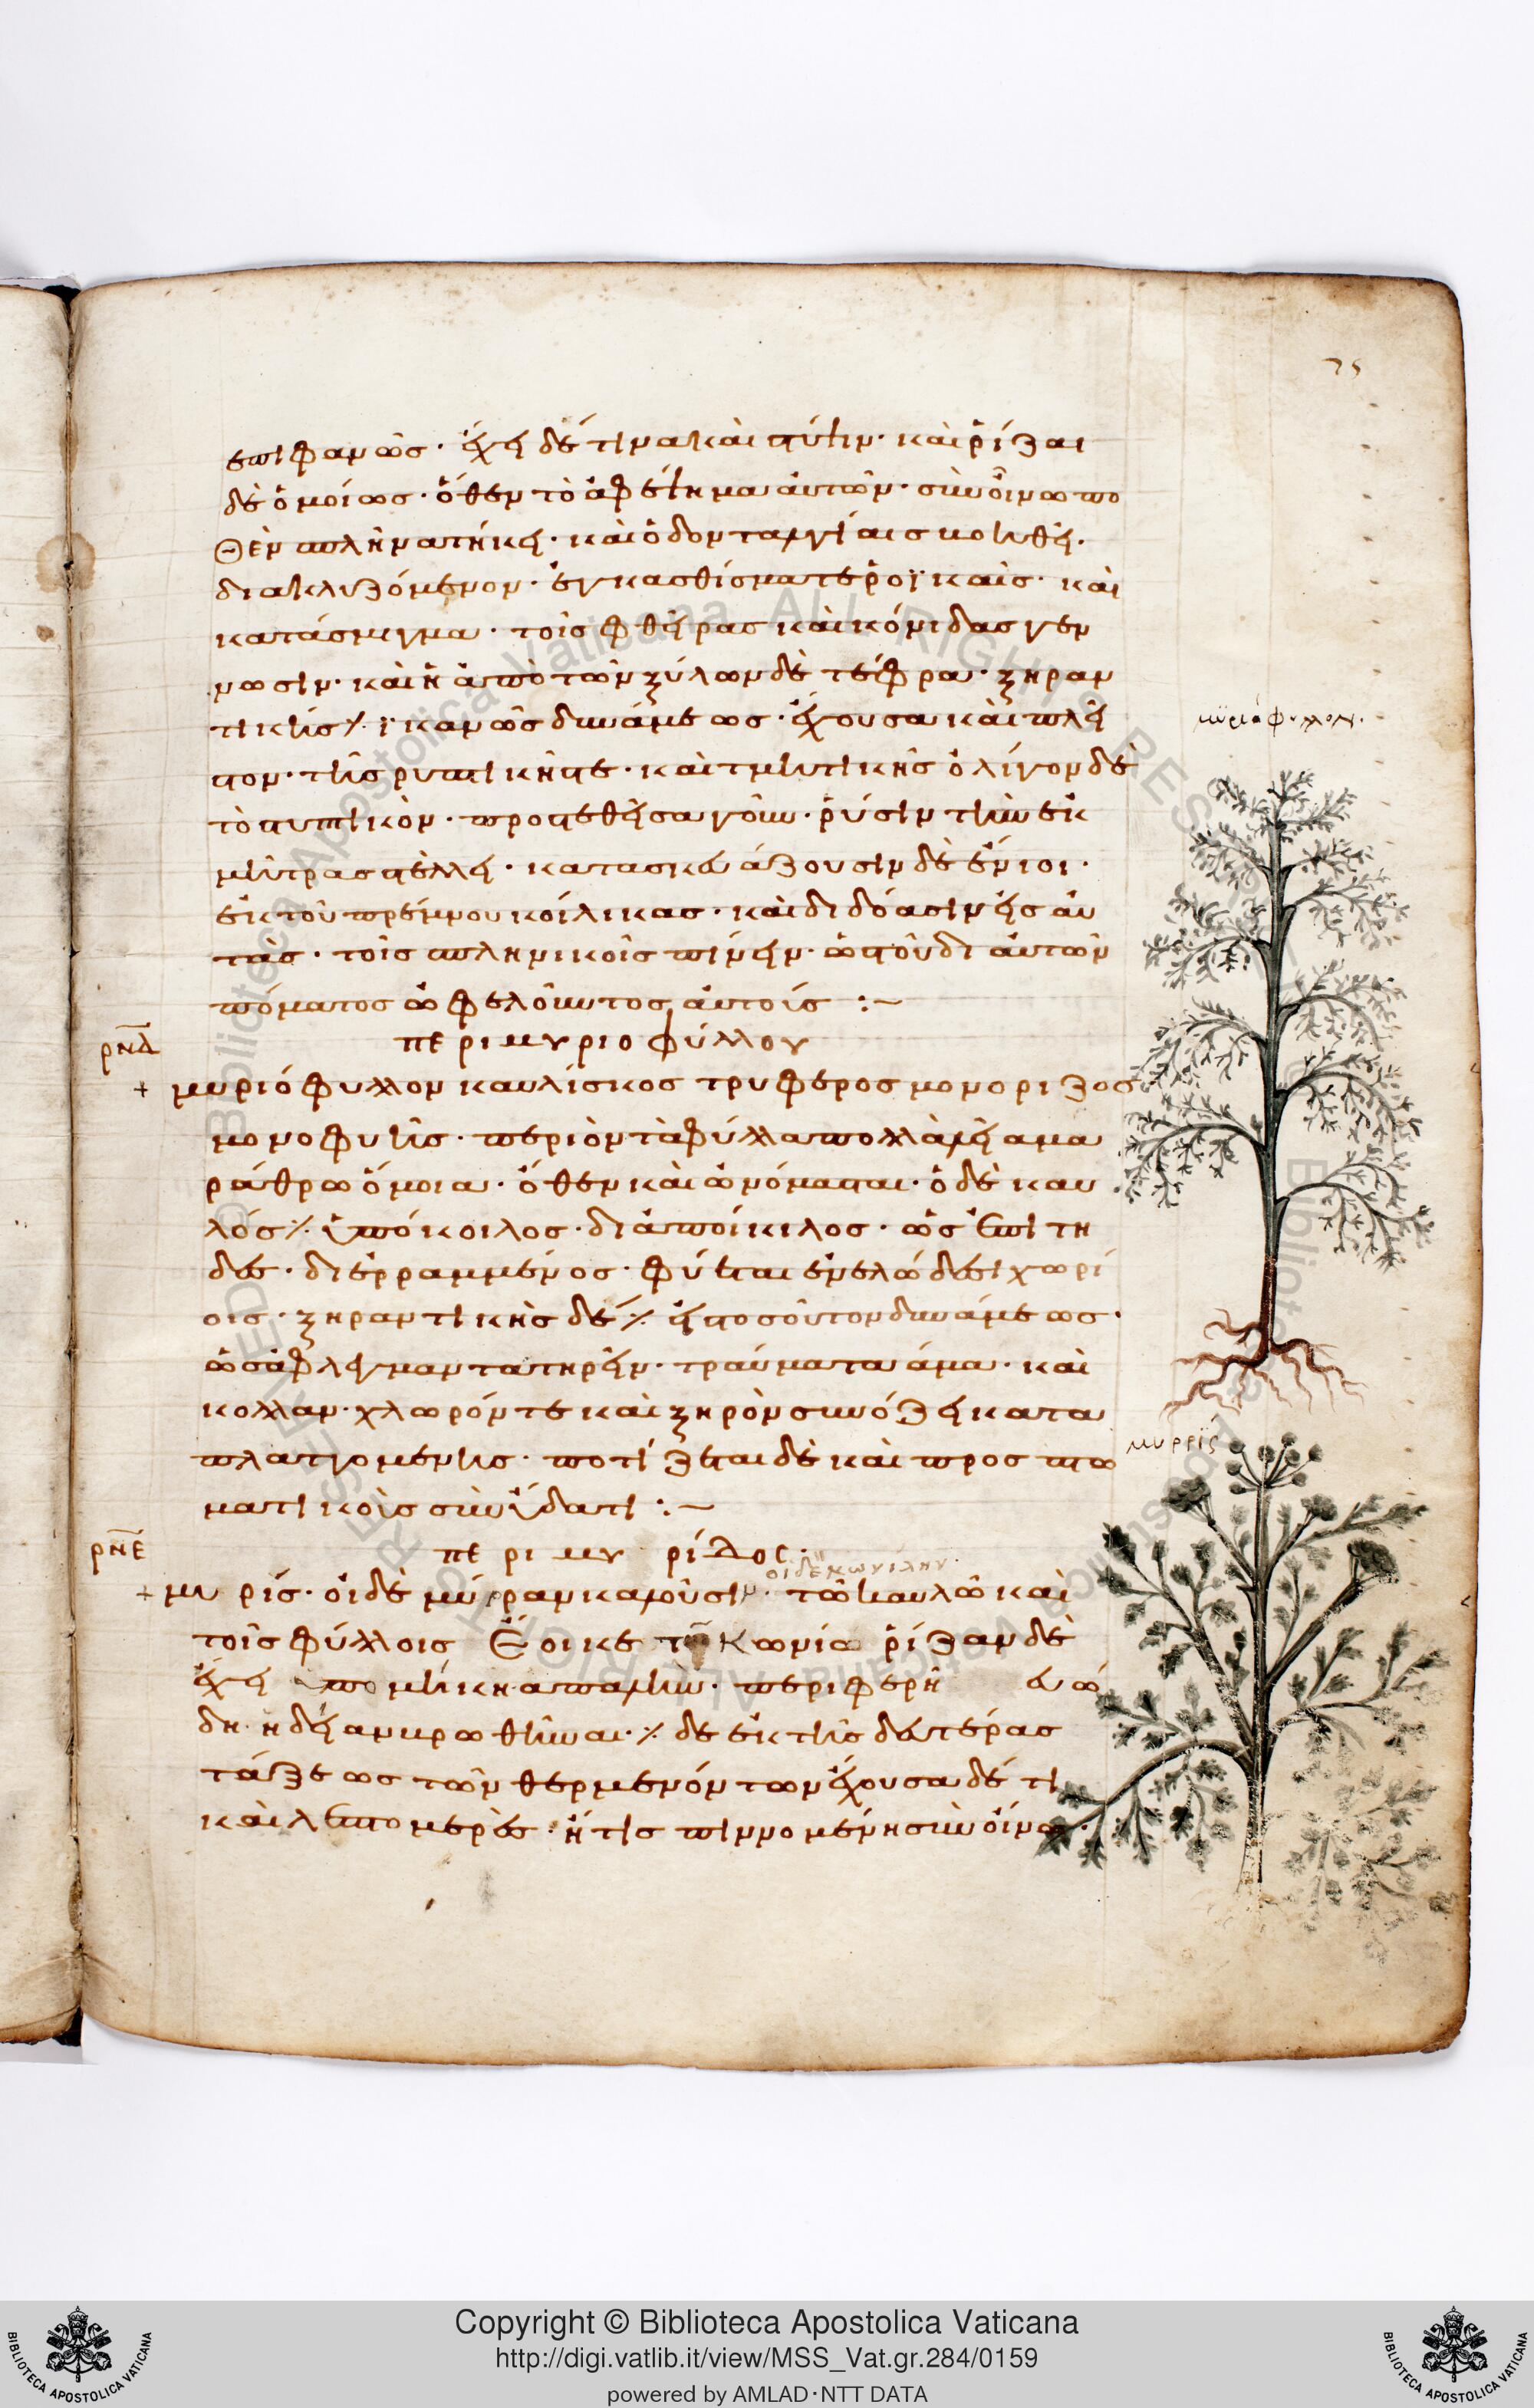 75
ἐπιφανῶς· ἔχει δέ τινα καὶ στύψιν· καὶ ῥίζαι
δὲ ὁμοίως· ὅθεν τὸ ἀφέψημα ἀυτῶν· σὺν ὄινω πο
θὲν σπλῆνα τήκει· καὶ ὀδονταλγίαις βοηθεῖ·
διακλυζόμενον· ἐγκασθίσματε ῥοϊκαῖς· καὶ
κατάσμιγμα· τοῖς φθεῖρας καὶ κόνιδας γεν
νωσιν· καὶ ἡ ἀπὸ τῶν ξύλων δὲ τέφρα· ξηραν
τικῆς ἱκανῶς δυνάμεως· ἔχουσα καὶ πλεῖ
στον· τῆς ῥυπτικῆς τε· καὶ τμητικῆς ὀλίγον δὲ
τὸ στυπτικὸν· προστεθεῖσα γοῦν· ῥύσιν τὴν ἐκ
μήτρας στέλλει· κατασκευάζουσιν δὲ ἔνιοι·
ἐκ τοῦ πρέμνου κύλικας· καὶ διδόασιν εἰς ἀυ
τὰς· τοῖς σπληνικοῖς πίνειν· ὡς τοῦ δι ἀυτῶν
πόματος ὠφελοῦντος ἀυτούς :~
ρνδ
περι μυριοφύλλου
+ μυριόφυλλον καυλίσκος τρυφερος μονοριζος
μυριάφυλλον·
μονοφυὴς· περι ὸν τὰ φύλλα πολλὰ λεῖα μα
ράθρω ὅμοια· ὅθεν καὶ ὠνόμασται· ὁ δὲ καυ
λός ὑπόκοιλος· διαποίκιλος· ὡς ἐπιτη
δές· διερραμμένος· φύεται ἐν ἑλώδεσι χωρί
οις· ξηραντικῆς δέ εἰς τοσοῦτον δυνάμεως·
ὡς ἀφλέγμαντα τηρεῖν· τραύματα ἅμα· καὶ
κολλαν· χλωρόν τε καὶ ξηρὸν συν ὄξει κατα
πλασσομένης· ποτίζεται δὲ καὶ προς πτω
μυρρὶς
ματικοὺς σὺν ὕδατι :~
ρνε
περι μυ ρίδος·
+ μυ ρίς· ὁι δὲ μύρραν καλοῦσιν· τῶ καυλῶ καὶ
τοῖς φύλλοις ἔοικε κωνίω ῥίζαν δὲ
ἔχει ὑπομήκη ἁπαλὴν· περιφερῆ ευώ
δη ἡδεῖαν βρωθῆναι· δε ἐκ τῆς δευτέρας
τάξεως τῶν θερμενόντων ἔχουσα δέ τι
καὶ λεπτομερὲς· ἥτις πιννομένη σὺν ὄινω·
Copyright © Biblioteca Apostolica Vaticana
http://digi.vatlib.it/view/MSS_Vat.gr.284/0159
powered by AMLAD·NTT DATA
BIBLIOTECA APOSTOLICA VATICANA
BIBLIOTECA APOSTOLICA VATICANA